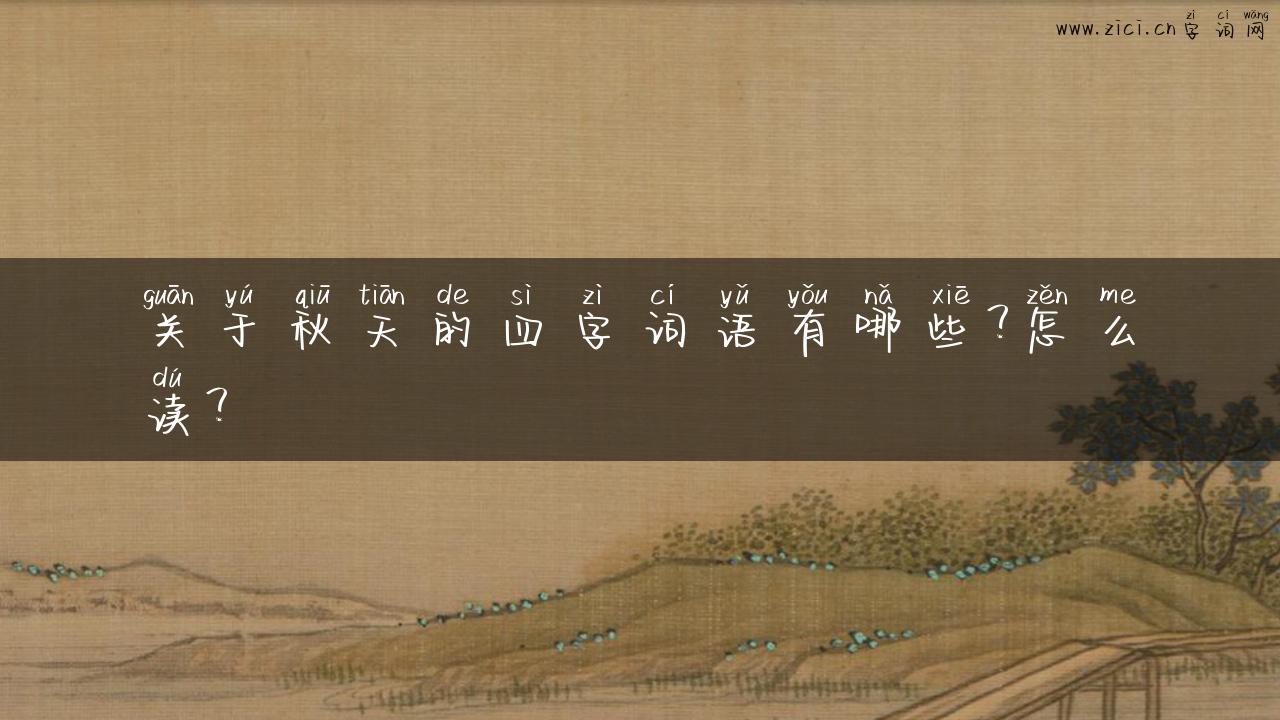 zì cí wǎng
www.zici.cn字词网
guān yú qiū tiān de sì zì cí yǔ yǒu nǎ xiē zěn me
关于秋天的四字词语有哪些?怎么
dú
读?